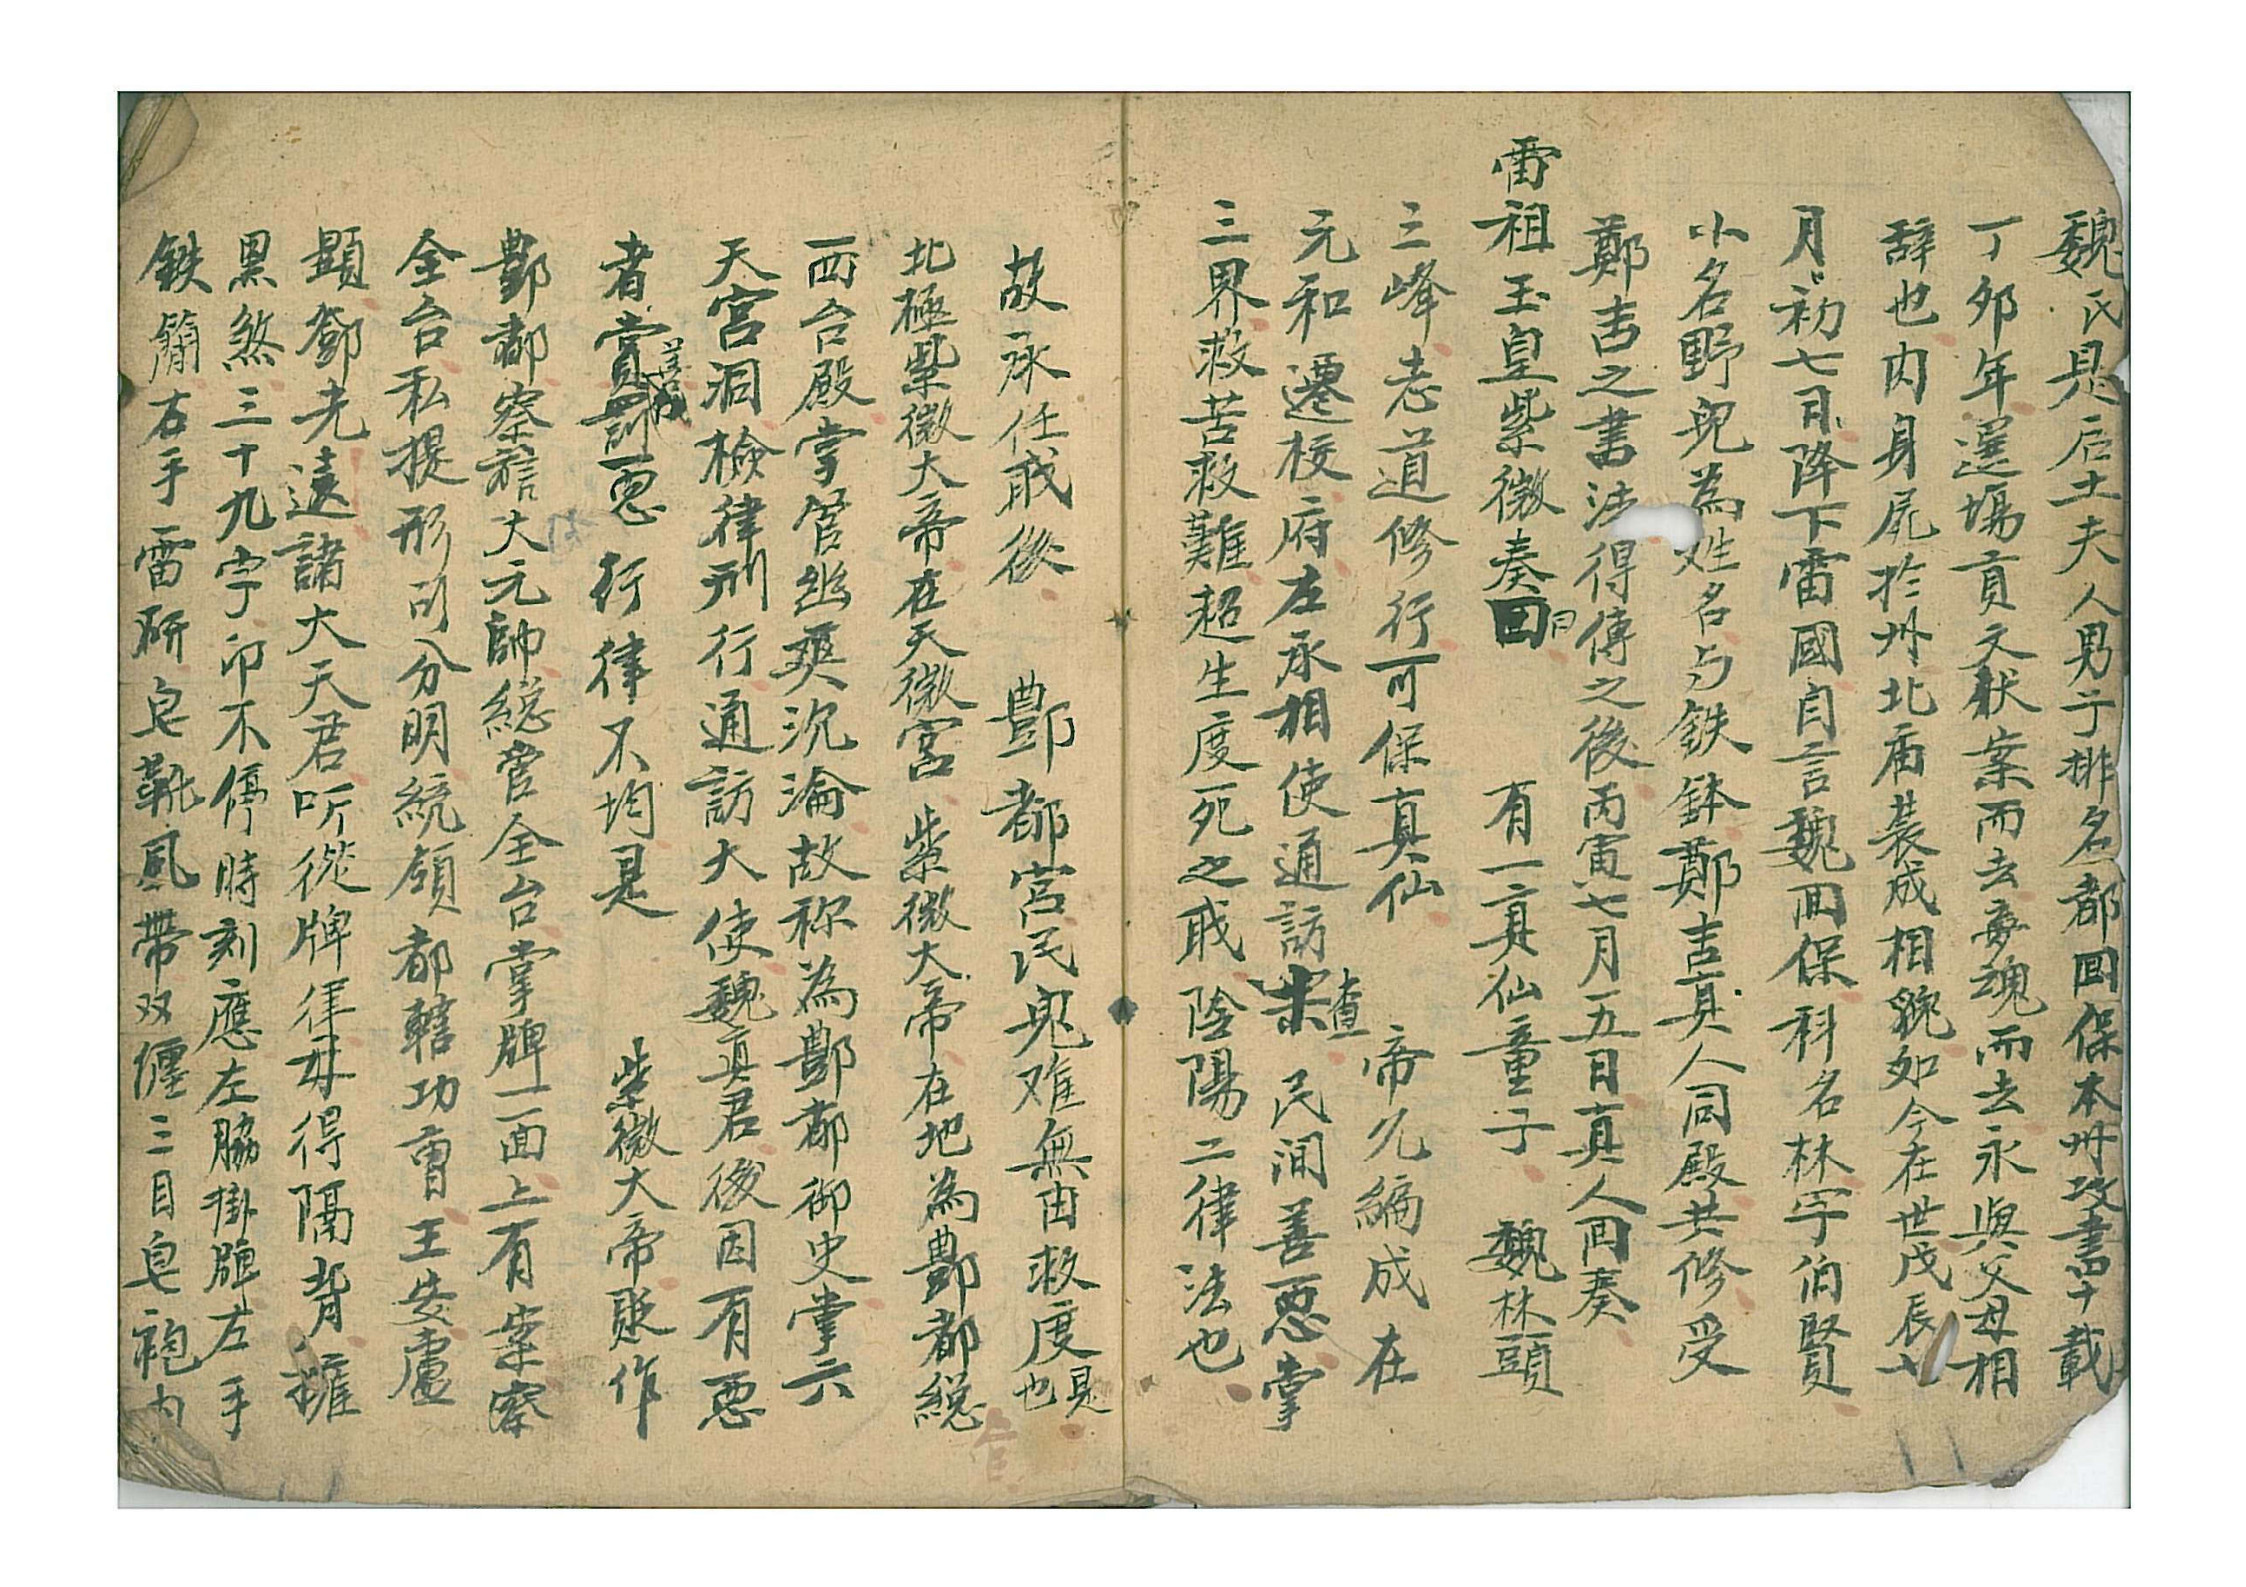 魏氏是后土夫人男子排名都囬保本州攻書十載
丁夘年選塲貢文狀案而去夢魂而去永與父母相
辞也内身屍扵州北庙裝成相貌如今在世戊辰七
月初七日降下雷國自言魏囬保科名林字伯賢
小名野児為姓名与鉄鉢鄭吉真人同殿共修受
鄭吉之書法得傳之後丙寅七月五日真人囬奏
雷祖玉皇紫微奏曰 有一真仙童子 魏林頭
三峰志道修行可保真仙 帝允編成在
元和遷校府左承相使通訪查 民间善惡掌
三界救苦救難超生度死之戢陰陽二律法也
故承任戢後 酆都宫民児难無由救度是也
北極紫微大帝在天微宮紫微大帝在地為酆都総
一四台殿掌管幽㷠沉淪故称為酆都御史掌六
天宫洞檢律刑行通訪大使魏真君後因有惡
者賞善罰惡行律不均是 紫微大帝貶作
酆都察訪大元帥総管全台掌牌一面上有案察
全台私提形司分明統領都轄功曹王安盧
顕鄧光遠諸大天君听從牌律毋得隔背擁
黒煞三十九字印不停時刻應左脇掛牌左手
鉄簡右手雷斫皂靴風帶双纏三目皂袍内